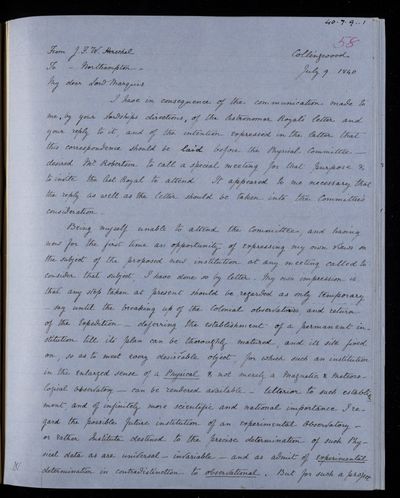 40.7.9..1
58
From J. F. W. Herschel
Collingwood
To — Northampton —
July 9 1840
My dear Lord Marquis
I have in consequence of the communication made to
me, by your Lordships directions, of the Astronomer Royal's letter and
your reply to it, and of the intention expressed in the latter that
this correspondence should be laid before the Physical Committee —
desired Mr. Roberton to call a special meeting for that purpose &
to invite the Ast Royal to attend It appeared to me necessary that
the reply as well as the letter should be taken into the Committee's
consideration.
Being myself unable to attend the Committee, and having
now for the first time an opportunity of expressing my own views on
the subject of the proposed new institution at any meeting called to
consider that subject I have done so by letter. My own impression is
that any step taken at present should be regarded as only temporary
— say until the breaking up of the Colonial observatories and return
of the Expedition — deferring the establishment of a permanent in-
stitution till its plan can be thoroughly matured, and its site fixed
on, so as to meet every desirable object, for which such an institution
in the enlarged sense of a Physical & not merely a Magnetic & Meteoro-
logical observatory — can be rendered available. — Ulterior to such establish-
ment, and of infinitely more scientific and national importance I re-
gard the possible future institution of an experimental Observatory —
or rather Institute destined to the precise determination of such Phy-
sical data as are universal — invariable — and as admit of experimental
determination in contradistinction to observational. But for such a proper